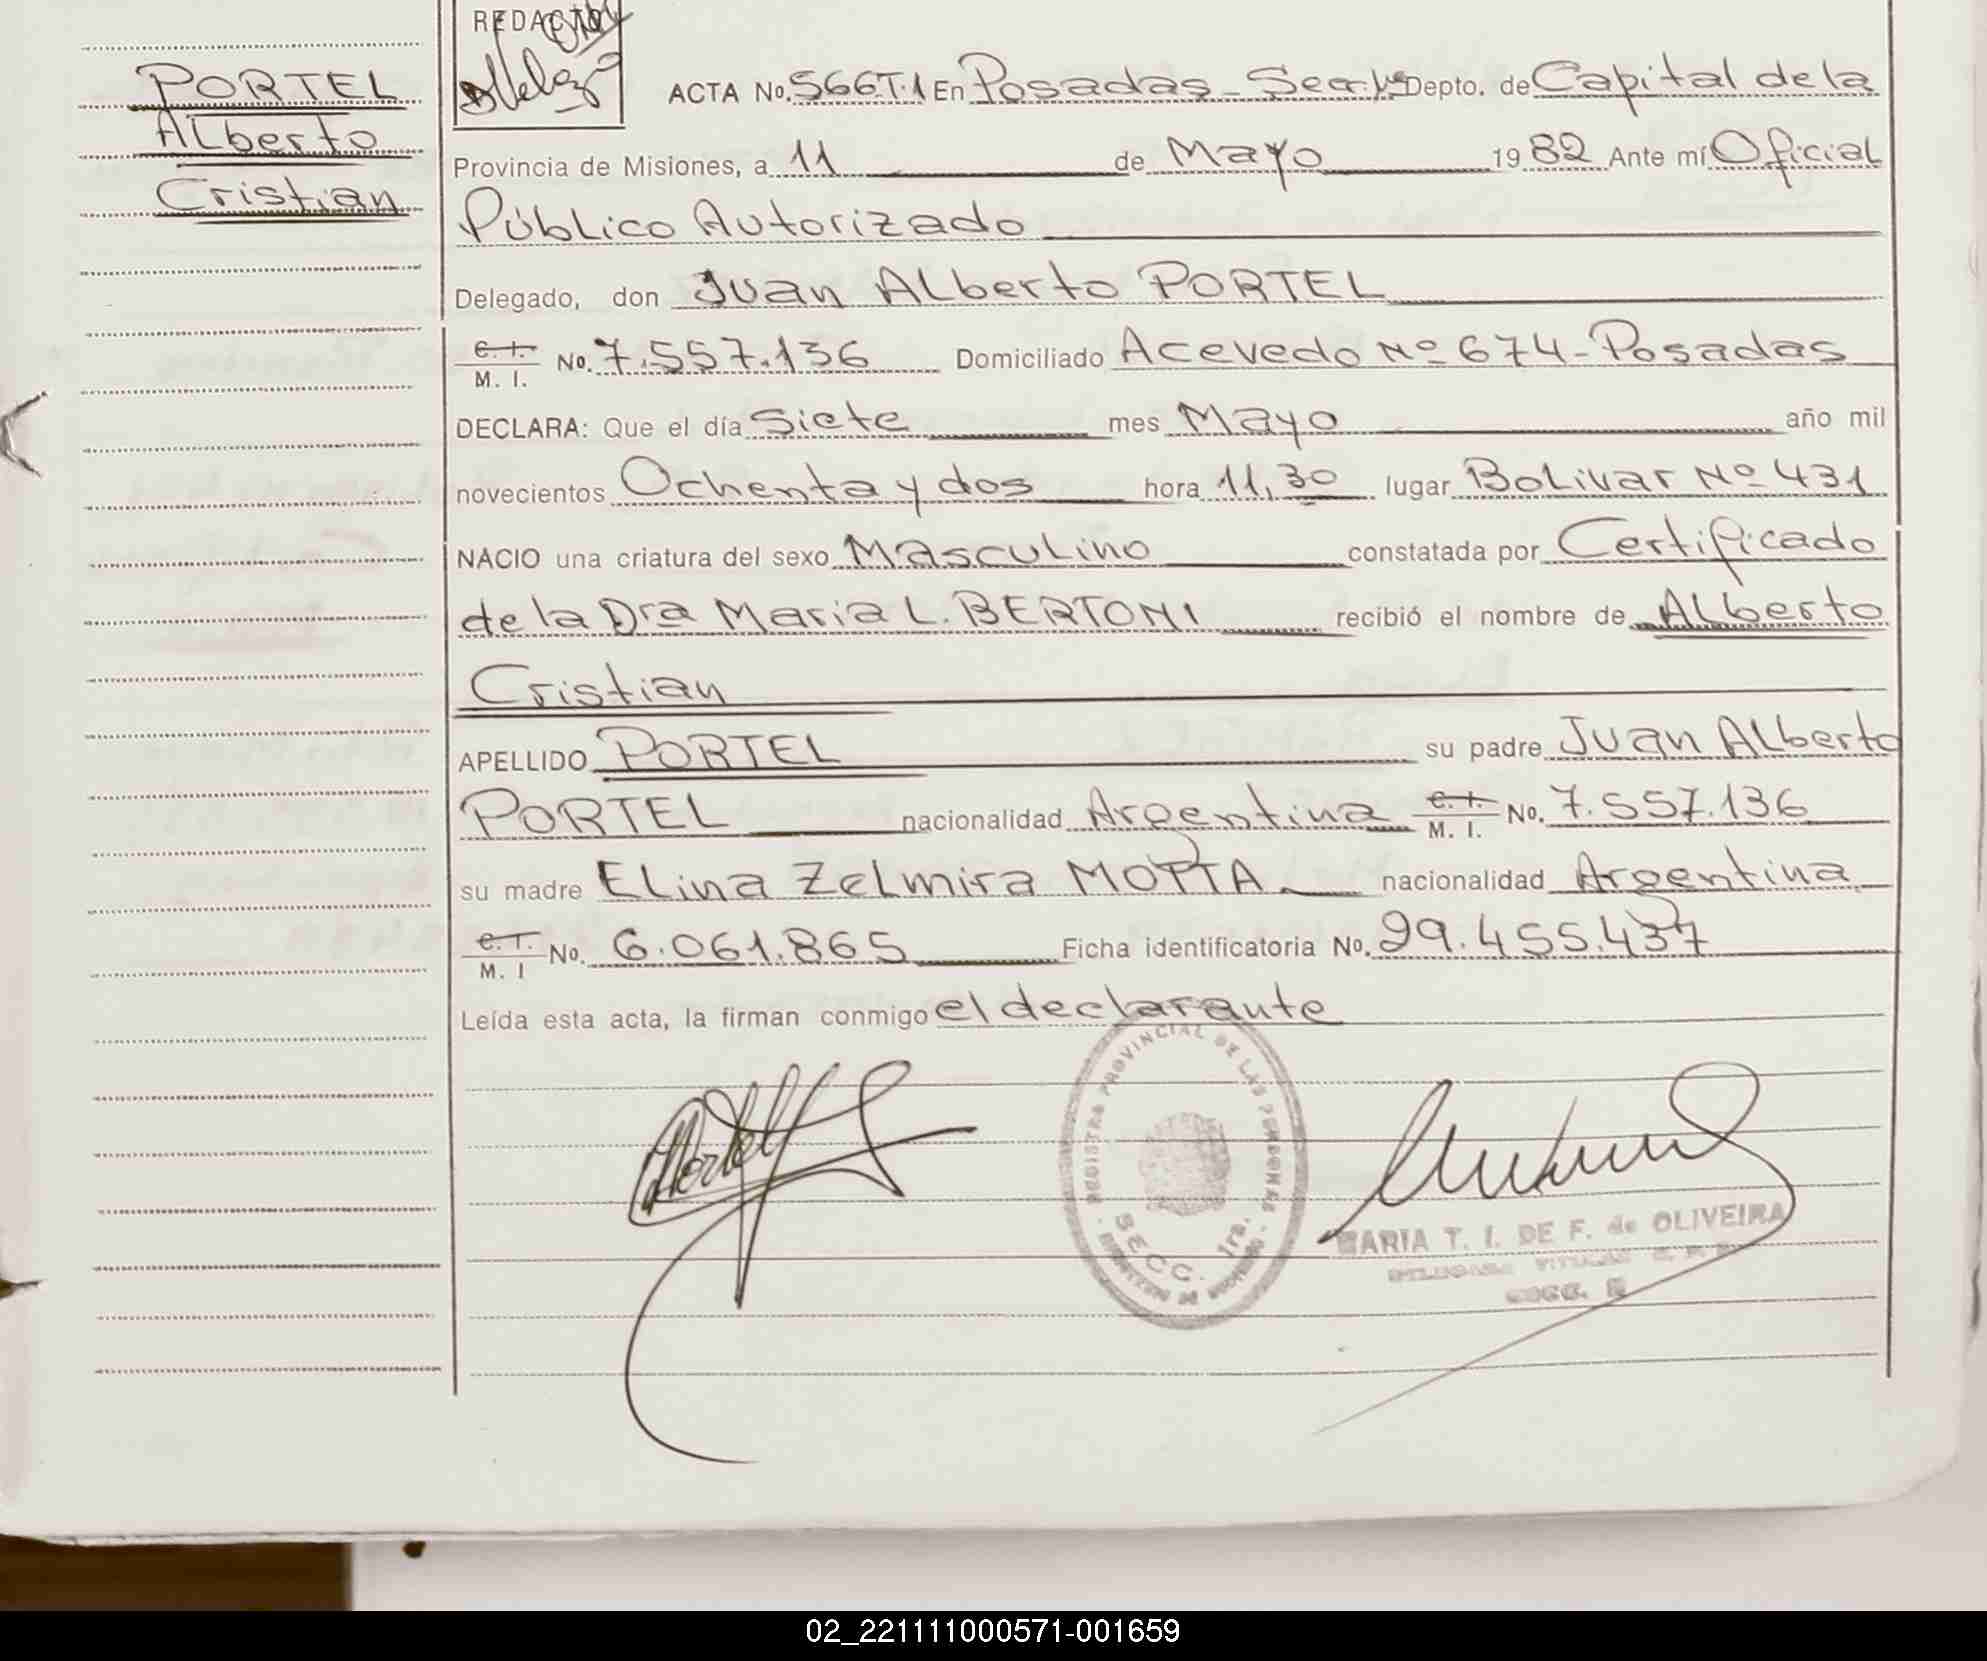 REDACTO
PORTEL
Alberto
Cristian
ACTA No. 566T.1 En Posadas - Depto. de Capital de la
Provincia de Misiones, a 11 de Mayo 1982 Ante mí Oficial
Público Autorizado
Delegado, don Juan Alberto PORTEL
C. I. M. I. No. 7.557.136 Domiciliado Acevedo Nº 674 - Posadas
DECLARA: Que el día Siete mes Mayo año mil
novecientos Ochenta y dos hora 11,30 lugar Bolivar Nº 431
NACIO una criatura del sexo Masculino constatada por Certificado
de la Dra Maria L. BERTONI recibió el nombre de Alberto
Cristian
APELLIDO PORTEL su padre Juan Alberto
PORTEL nacionalidad Argentina C. I. M. I. No. 7.557.136
su madre Elina Zelmira MOTTA nacionalidad Argentina
C. I. M. I No. 6.061.865 Ficha identificatoria No. 29.455.437
Leída esta acta, la firman conmigo el declarante
REGISTRO PROVINCIAL DE LAS PERSONAS
SECC. 1ra.
MARIA T. I. DE F. de OLIVEIRA
02_221111000571-001659